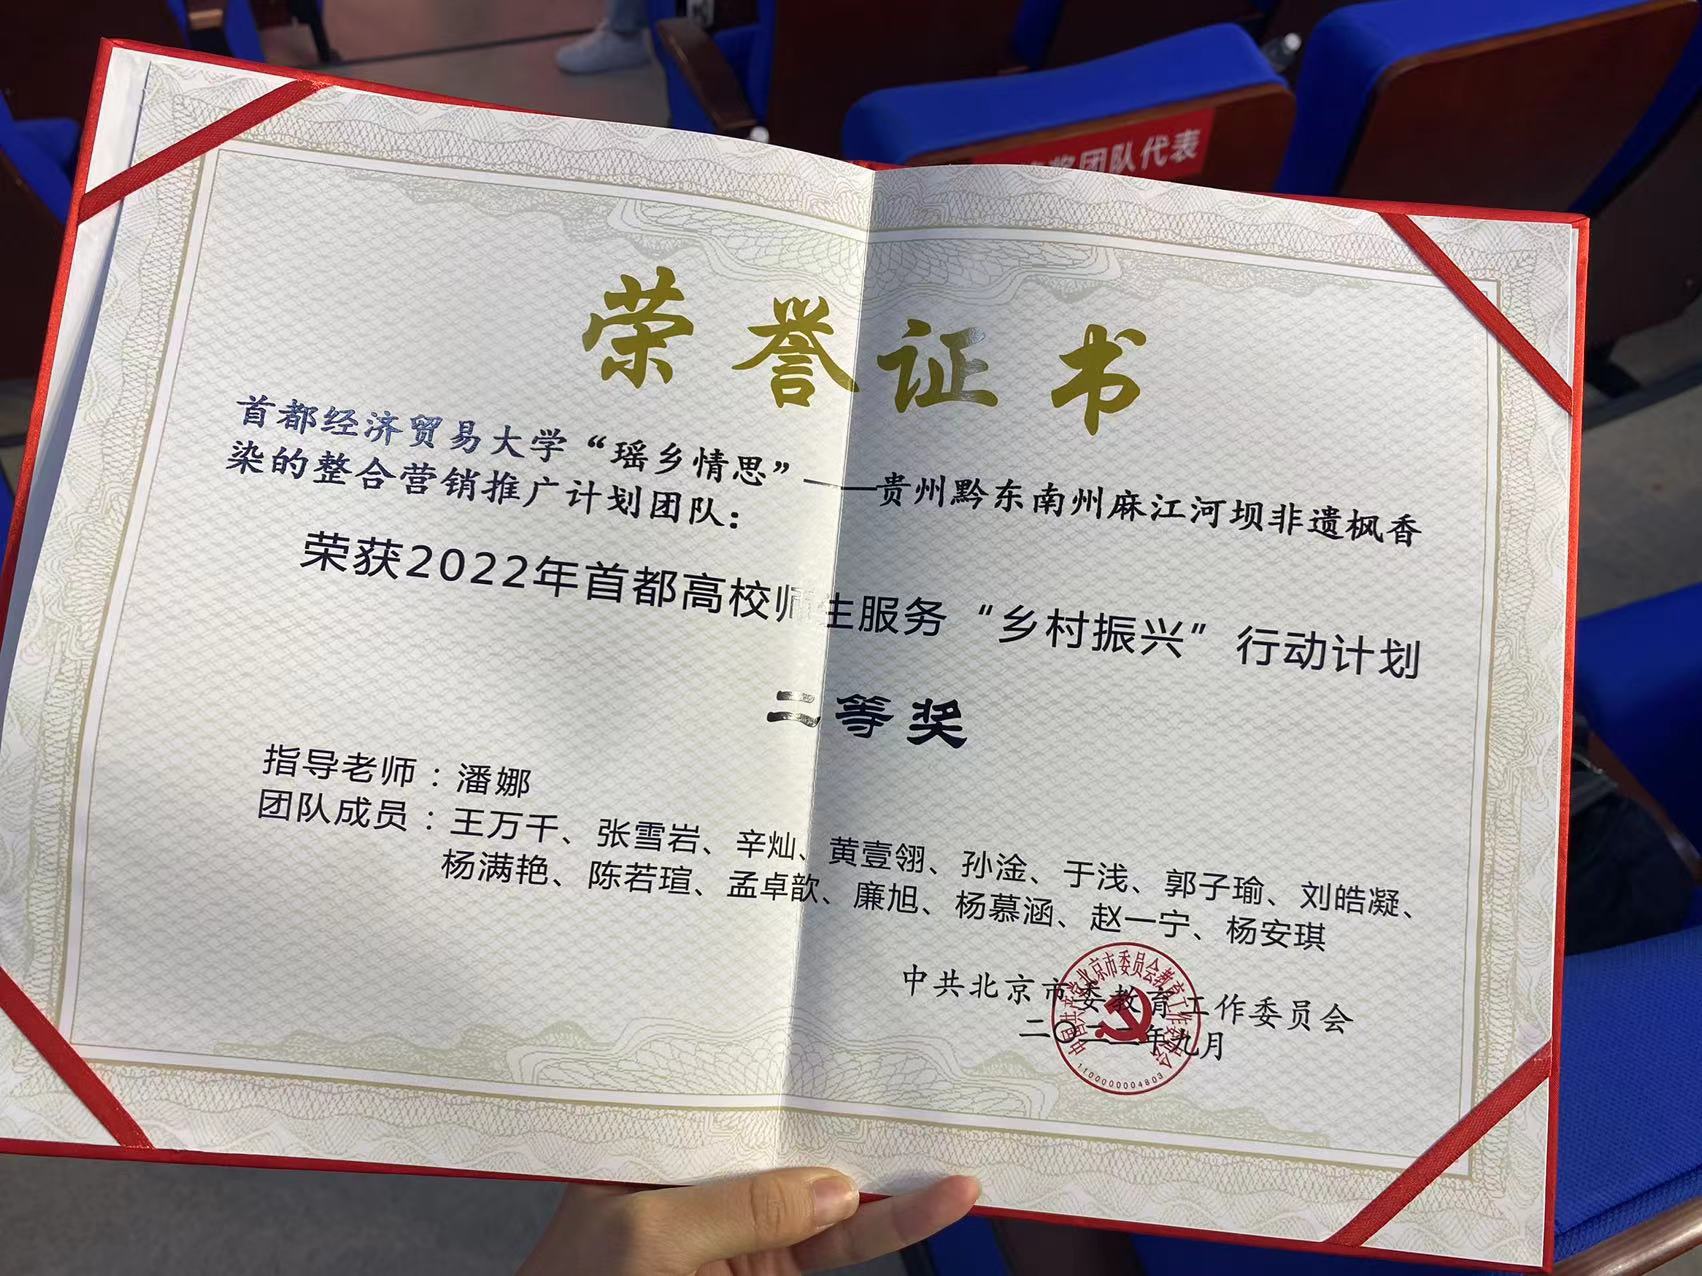 奖团队代表
荣誉证书
首都经济贸易大学“瑶乡情思”——贵州黔东南州麻江河坝非遗枫香
染的整合营销推广计划团队：
荣获2022年首都高校师生服务“乡村振兴”行动计划
二等奖
指导老师：潘娜
团队成员：王万千、张雪岩、辛灿、黄壹翎、孙淦、于浅、郭子瑜、刘皓凝、
杨满艳、陈若瑄、孟卓歆、廉旭、杨慕涵、赵一宁、杨安琪
中共北京市委教育工作委员会
二〇二二年九月
中国共产党北京市委员会教育工作委员会
1100000004803